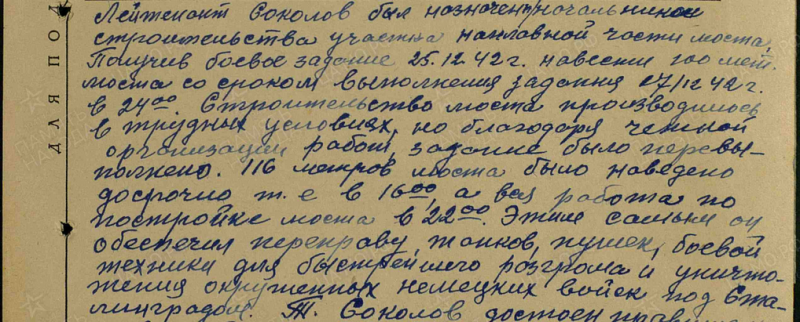 Лейтенант Соколов был назначен начальником
строительства участка наплавной части моста.
Получив боевое задание 25.12.42 г. навести 100 мет.
моста со сроком выполнения задания 27/12 42 г.
в 24⁰⁰. Строительство моста производилось
в трудных условиях, но благодаря четкой
организации работ, задание было перевы-
полнено. 116 метров моста было наведено
досрочно т. е в 16⁰⁰, а вся работа по
постройке моста в 22⁰⁰. Этим самым он
обеспечил переправу, танков, пушек, боевой
техники для быстрейшего разгрома и уничто-
жения окруженных немецких войск под Ста-
линградом. Т. Соколов достоин
ДЛЯ ПОД